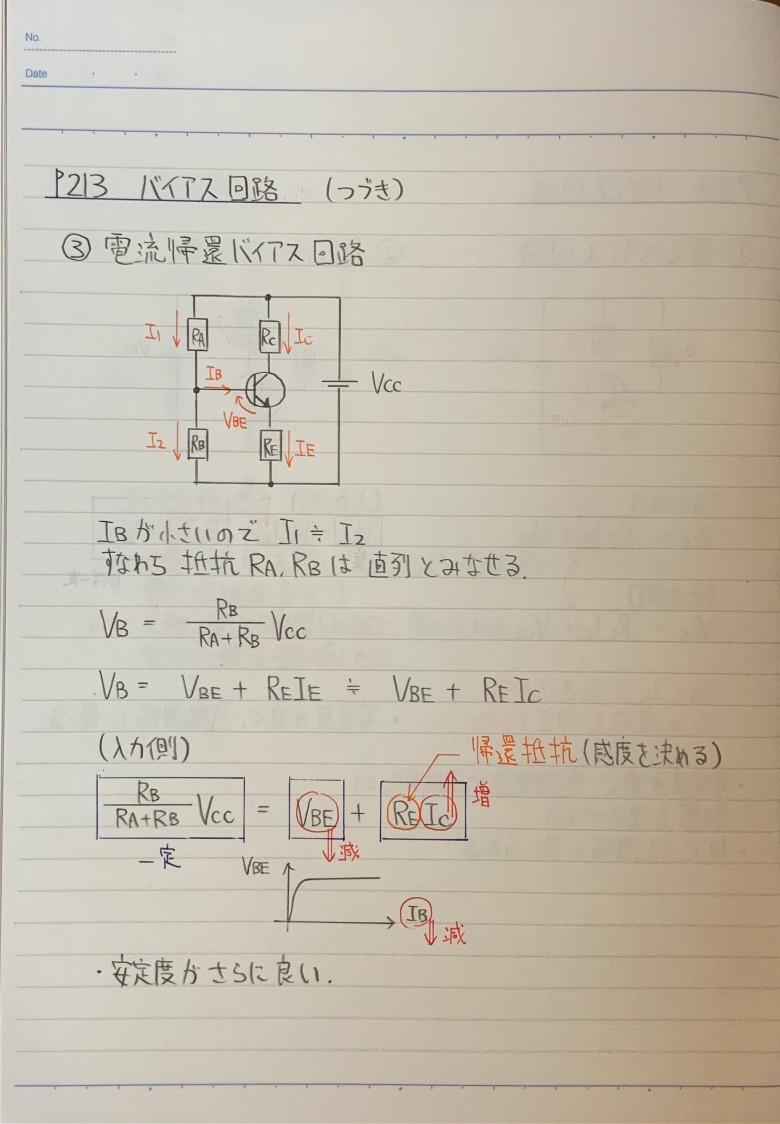 No.
Date
P213 バイアス回路 (つづき)
③ 電流帰還バイアス回路
I1 RA RC IC
IB
VCC
VBE
I2 RB RE IE
IBが小さいので I1≒I2
すなわち 抵抗RA,RBは直列とみなせる.
VB = RB/(RA+RB) VCC
VB = VBE + REIE ≒ VBE + REIC
(入力側)
帰還抵抗(感度を決める)
RB/(RA+RB) VCC = VBE + REIC 増
一定 減
VBE
IB 減
・安定度がさらに良い.